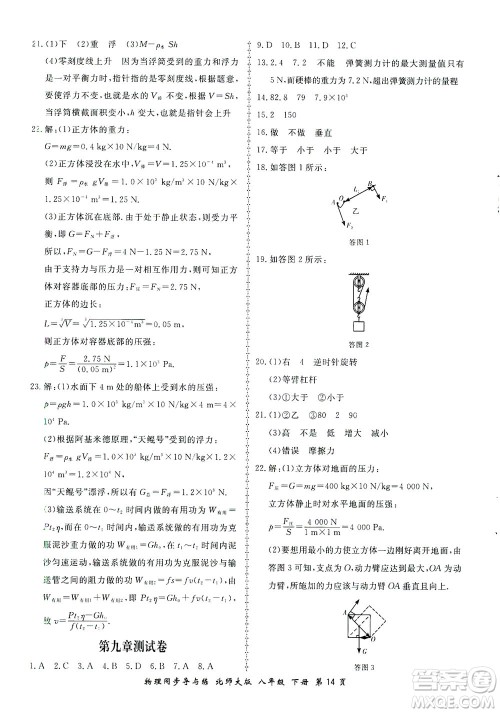 21. (1)下　(2)重　浮　(3)M－ρ水 Sh
(4)零刻度线上升　当浮筒所受的重力与浮力是一对平衡力时,指针指的是零刻度线,根据 G物＝F浮,当浮筒横截面积变大时,浮力变大,指针会上升
22. 解:(1)正方体的重力:
G＝mg＝0.4 kg×10 N/kg＝4 N.
(2)正方体浸没在水中,V排＝V＝1.25×10⁻⁴ m³,
F浮＝ρ水 gV排＝1.0×10³ kg/m³×10 N/kg×
1.25×10⁻⁴ m³＝1.25 N.
(3)正方体沉在底部.由于处于静止状态,受力平
衡,G＝FN＋F浮,FN＝G－F浮＝2.75 N,
由于支持力与压力是一对相互作用力,则静止时
正方体对容器底部的压力F压＝FN＝2.75 N.
正方体的边长:
L＝∛V＝∛(1.25×10⁻⁴ m³)＝0.05 m,
则正方体对容器底部的压强:
p＝F/S＝2.75 N/(0.05 m)²＝1.1×10³ Pa.
23. 解:(1)水面下 4 m 处的船体上受到水的压强:
p＝ρgh＝1.0×10³ kg/m³×10 N/kg×4 m＝4×
10⁴ Pa.
(2)根据阿基米德原理,“天鲲号”受到的浮力:
F浮＝G排＝m排 g
因“天鲲号”漂浮,所以 G总＝F浮＝m排 g.
(3)输送系统在 0～t₁ 时间内,输送系统做的功为
Pt₁.在 0～t₁ 时间内,输送系统做的有用功为克
服泥沙重力做的功 W有用1＝Gh₀,在 t₁～t₂ 时间内,
泥沙匀速运动,输送系统做的有用功为克服泥沙与输送
管之间的阻力做的功 W有用2＝fs＝fv(t₂－t₁),
W有用1＋W有用2＝Pt₂η,即 Gh₀＋fv(t₂－t₁)＝Pt₂η,
故 v＝(Pt₂η－Gh₀)/f(t₂－t₁).
第九章测试卷
1. A　2. C　3. D　4. C　5. B　6. A　7. D　8. A
9. D　10. A　11. D　12. C
13. 2.4　7.2　不能　弹簧测力计的最大测量值只有
5 N,而硬棒的重力为 7.2 N,超出弹簧测力计的量程
14. 82.8　79.2　7.9×10³
15. 2　150
16. 做　不做　垂直
17. 等于　小于　大于　大于
18. 如答图 1 所示:
A O L B F₁ F₂ 乙
答图 1
19. 如答图 2 所示:
答图 2
20. (1)右　4　逆时针旋转
(2)等臂杠杆
(3)①大于　②小于
21. (1)①乙　②1.8　80%　(2)0.2
(3)高　不是　低　小于
(4)错误　摩擦力
22. 解:(1)立方体对地面的压力:
F压＝G＝mg＝400 kg×10 N/kg＝4 000 N,
立方体对地面的压强:
p＝F压/S＝4 000 N/(1 m×1 m)＝4 000 Pa.
(2)要想用最小的力使立方体一边刚好离开地面,由
答图 3 可知,最长的动力臂为 OA,当动力臂 OA 作为动
力臂,所施加的力应该与动力臂 OA 垂直且向上.
答图 3
物理同步导与练　北师大版　八年级　下册　第 14 页